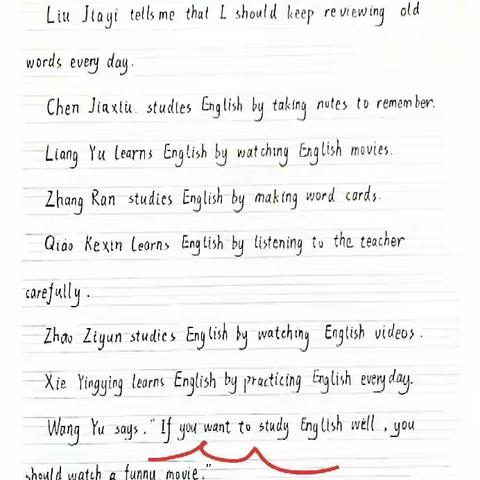 Liu Jiayi tells me that I should keep reviewing old
words every day.
Chen Jiaxiu studies English by taking notes to remember.
Liang Yu learns English by watching English movies.
Zhang Ran studies English by making word cards.
Qiao Kexin learns English by listening to the teacher
carefully.
Zhao Ziyun studies English by watching English videos.
Xie Yingying learns English by practicing English everyday.
Wang Yu says. "If you want to study English well, you
should watch a funny movie."